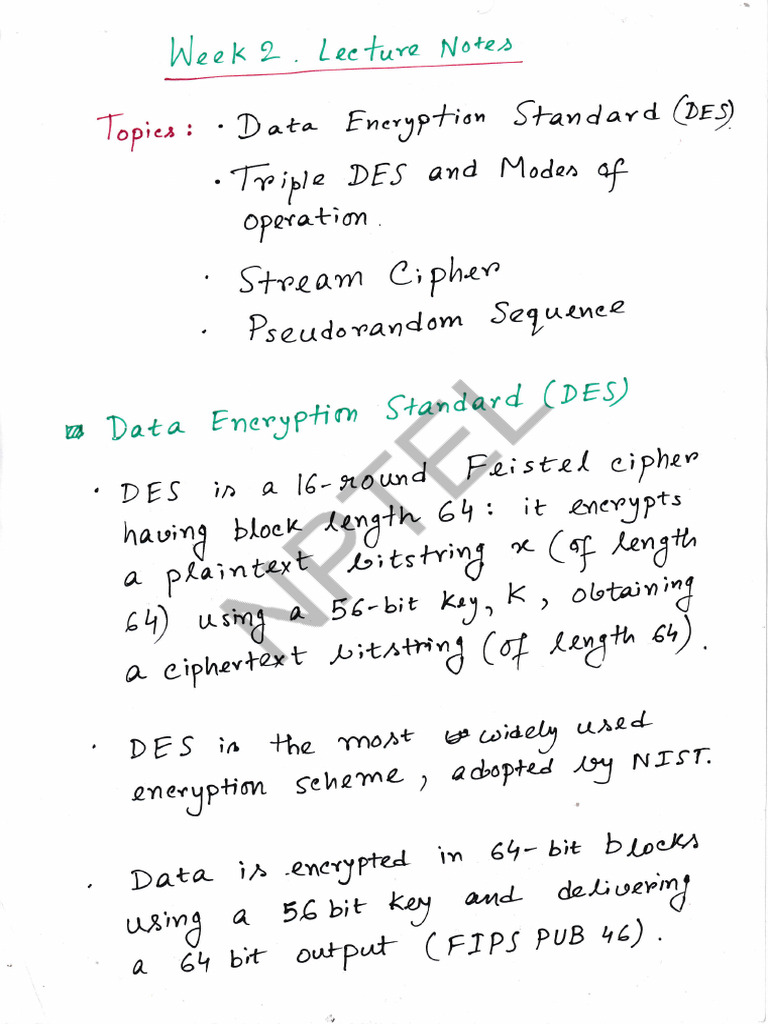 Week 2. Lecture Notes
Topics: • Data Encryption Standard (DES).
• Triple DES and Modes of
operation.
• Stream Cipher
• Pseudorandom Sequence
Data Encryption Standard (DES)
• DES is a 16-round Feistel cipher
having block length 64: it encrypts
a plaintext bitstring x (of length
64) using a 56-bit key, K, obtaining
a ciphertext bitstring (of length 64).
• DES is the most widely used
encryption scheme, adopted by NIST.
• Data is encrypted in 64-bit blocks
using a 56 bit key and delivering
a 64 bit output (FIPS PUB 46).
NPTEL